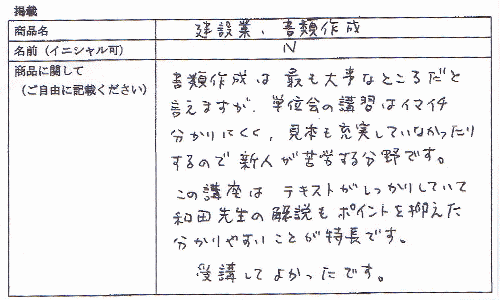 掲載
商品名 建設業、書類作成
名前（イニシャル可） N
商品に関して
（ご自由に記載ください）
書類作成は最も大事なところだと
言えますが、単位会の講習はイマイチ
分かりにくく、見本も充実していなかったり
するので新人が苦労する分野です。
この講座は テキストがしっかりしていて
和田先生の解説もポイントを抑えた
分かりやすいことが特長です。
受講してよかったです。